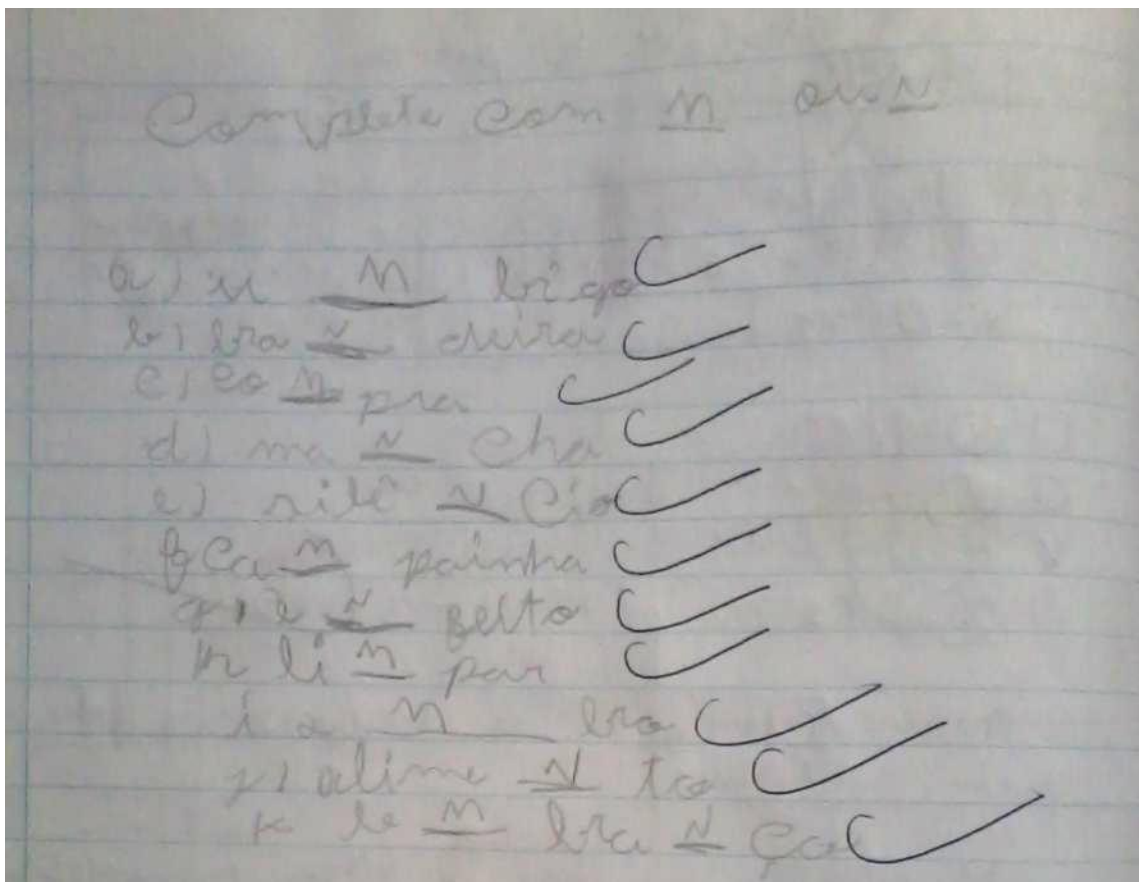 Complete com M ou N
a) u M bigo
b) ba N deira
c) co M pra
d) ma N cha
e) silê N cio
f) ca M painha
g) i N seto
h li M par
i o M bro
j) alime N to
k le M bra N ça